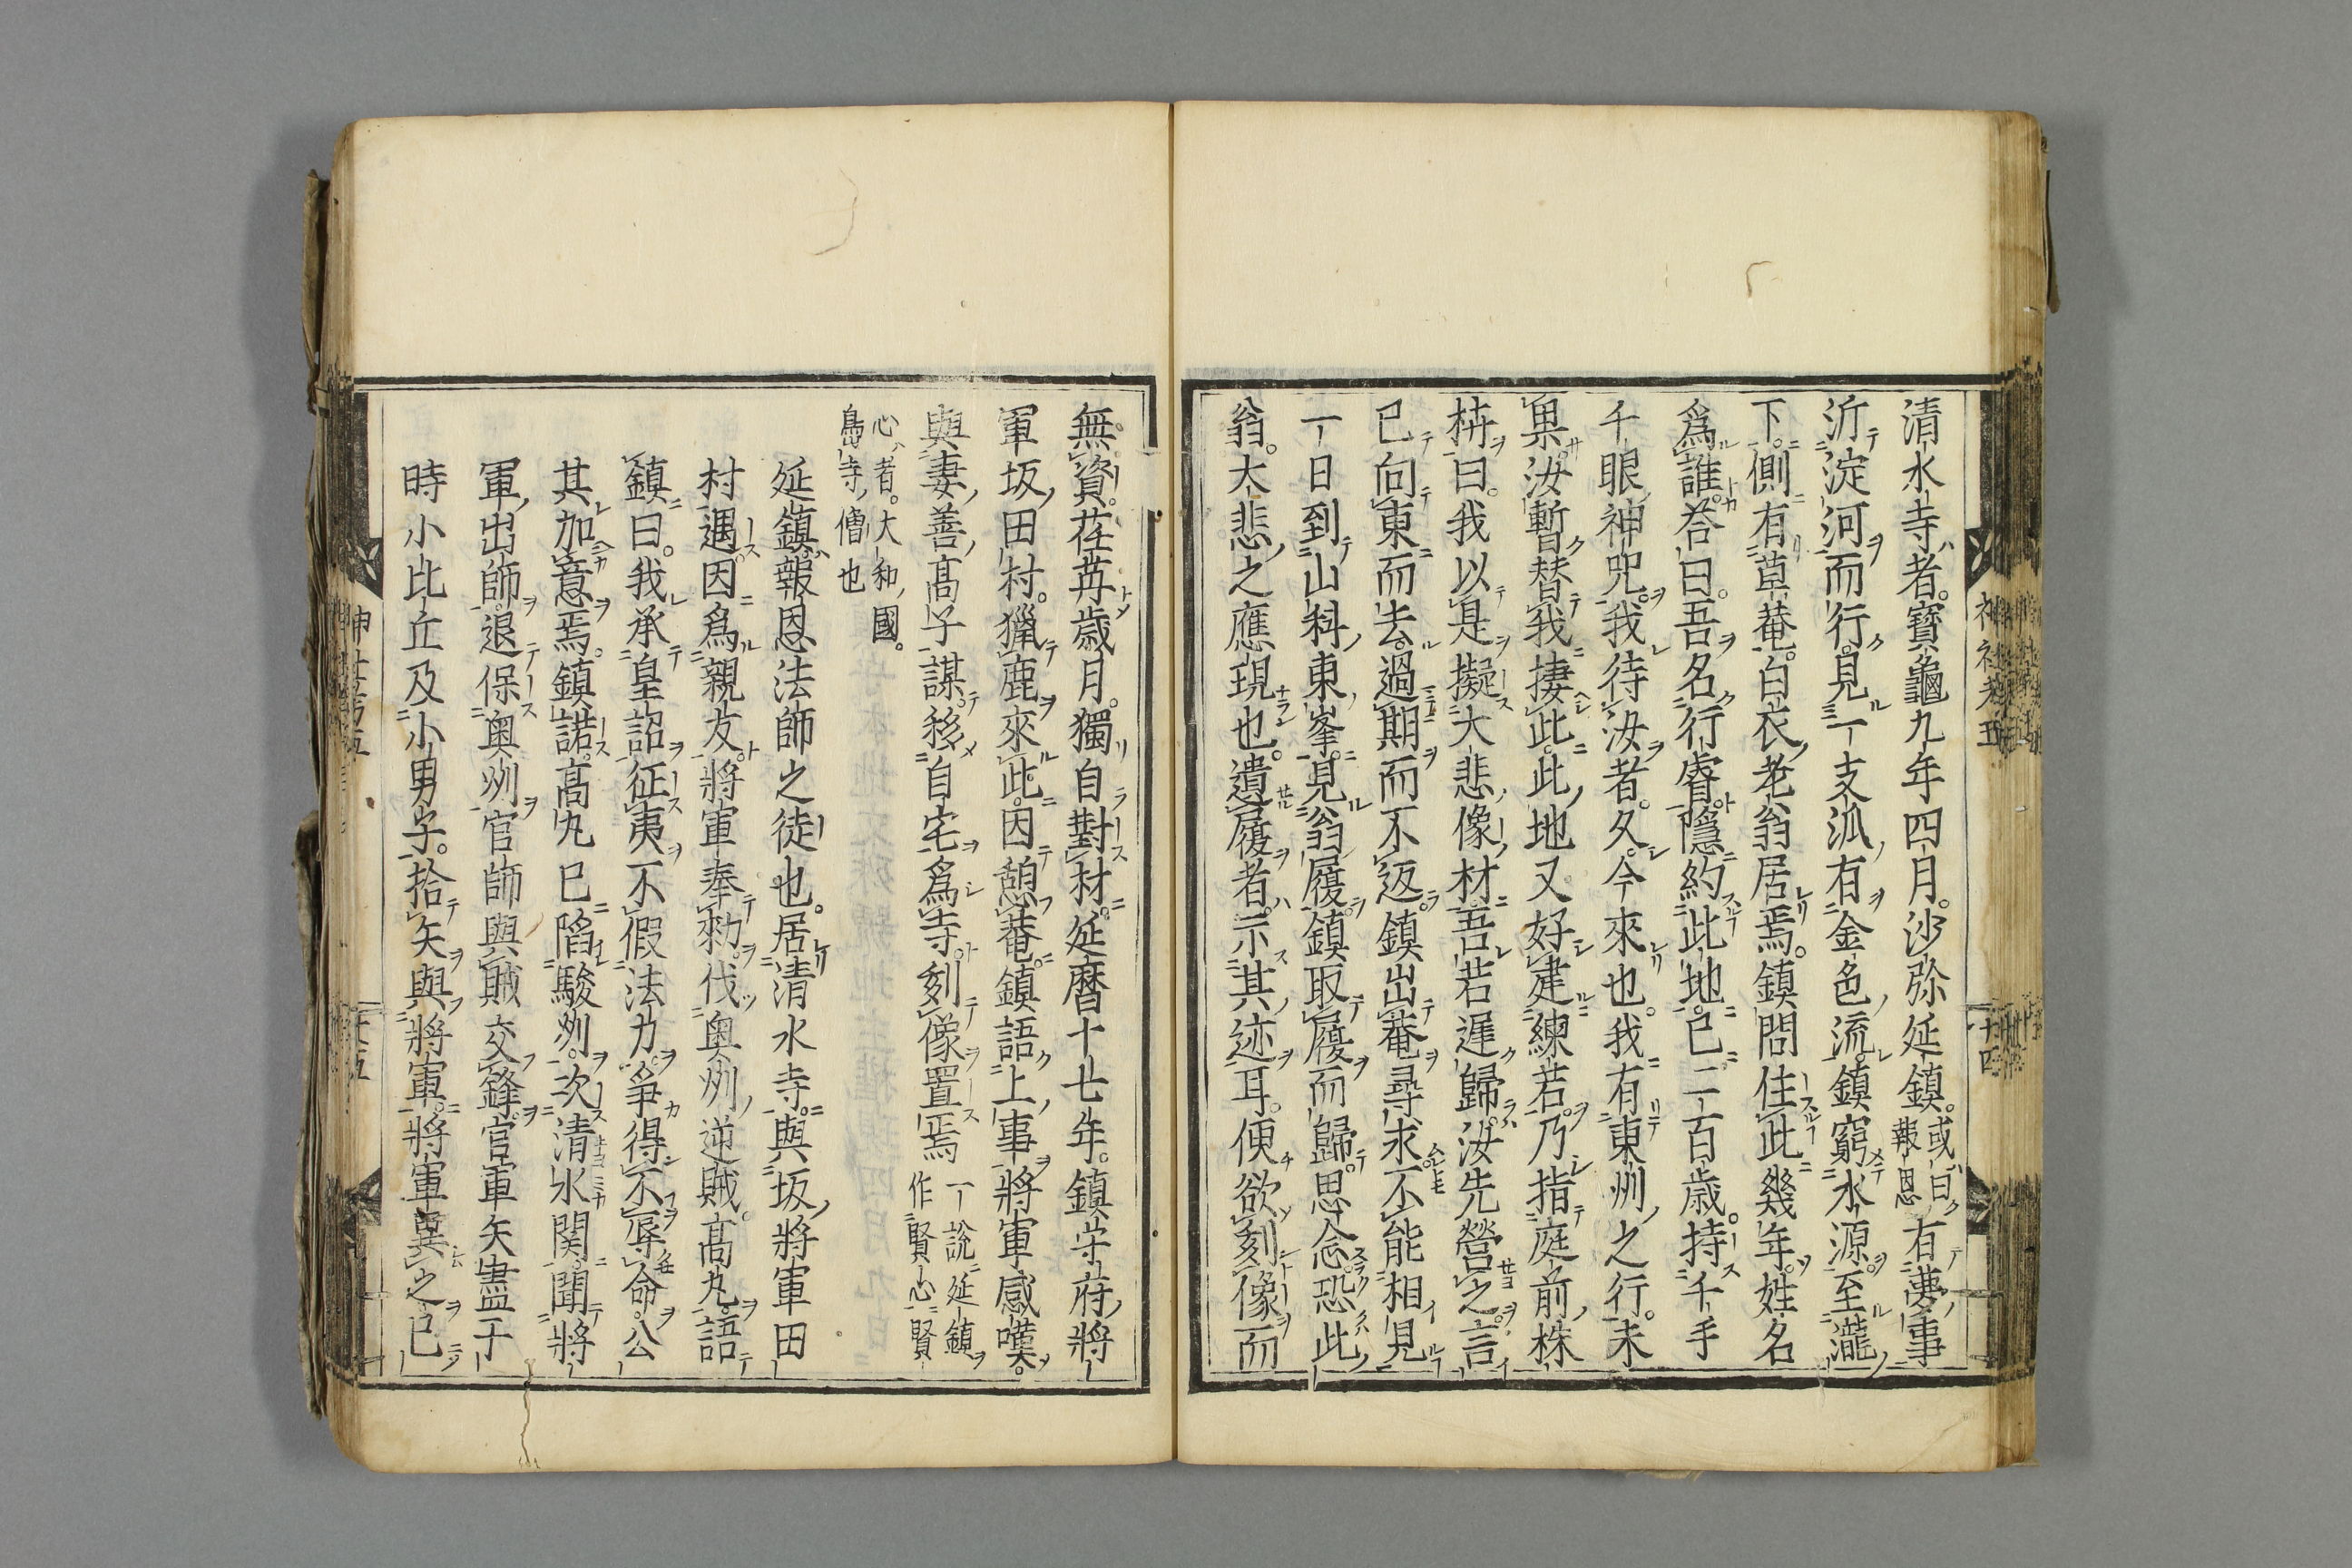 清水寺者。寶龜九年四月。沙弥延鎮。或曰報恩有夢事
沂淀河而行。見一支派有金色流。鎮窮水源。至瀧
下。側有草菴。白衣老翁居焉。鎮問住此幾年。姓名
爲誰。答曰。吾名行睿。隱約此地。已二百歳。持千手
千眼神咒。我待汝者。久。今來也。我有東州之行。未
果。汝暫替我捿此。此地又好建練若。乃指庭前株
枿曰。我以是擬大悲像材。吾若遲歸。汝先營之。言
已向東而去。過期而不返。鎮出菴尋求。不能相見
一日到山科東峯。見翁履。鎮取履而歸。思念恐此
翁。大悲之應現也。遺履者。示其迹耳。便欲刻像而
無資。荏苒歳月。獨自對材。延曆十七年。鎮守府將
軍坂田村。獵鹿來此。因憩菴。鎮語上事。將軍感嘆。
與妻善高子謀。移自宅爲寺。刻像置焉一說延鎮作賢心賢
心者。大和國。島寺僧也
延鎮報恩法師之徒也。居清水寺。與坂將軍田
村遇。因爲親友。將軍奉勑。伐奥州逆賊。高丸。語
鎮曰。我承皇詔征夷。不假法力。爭得不辱命。公
其加意焉。鎮諾。高丸已陷駿州。次清水関。聞將
軍出師。退保奥州。官師與賊交鋒。官軍矢盡于
時小比丘及小男子。拾矢與將軍。將軍異之。已
神社考五
十四